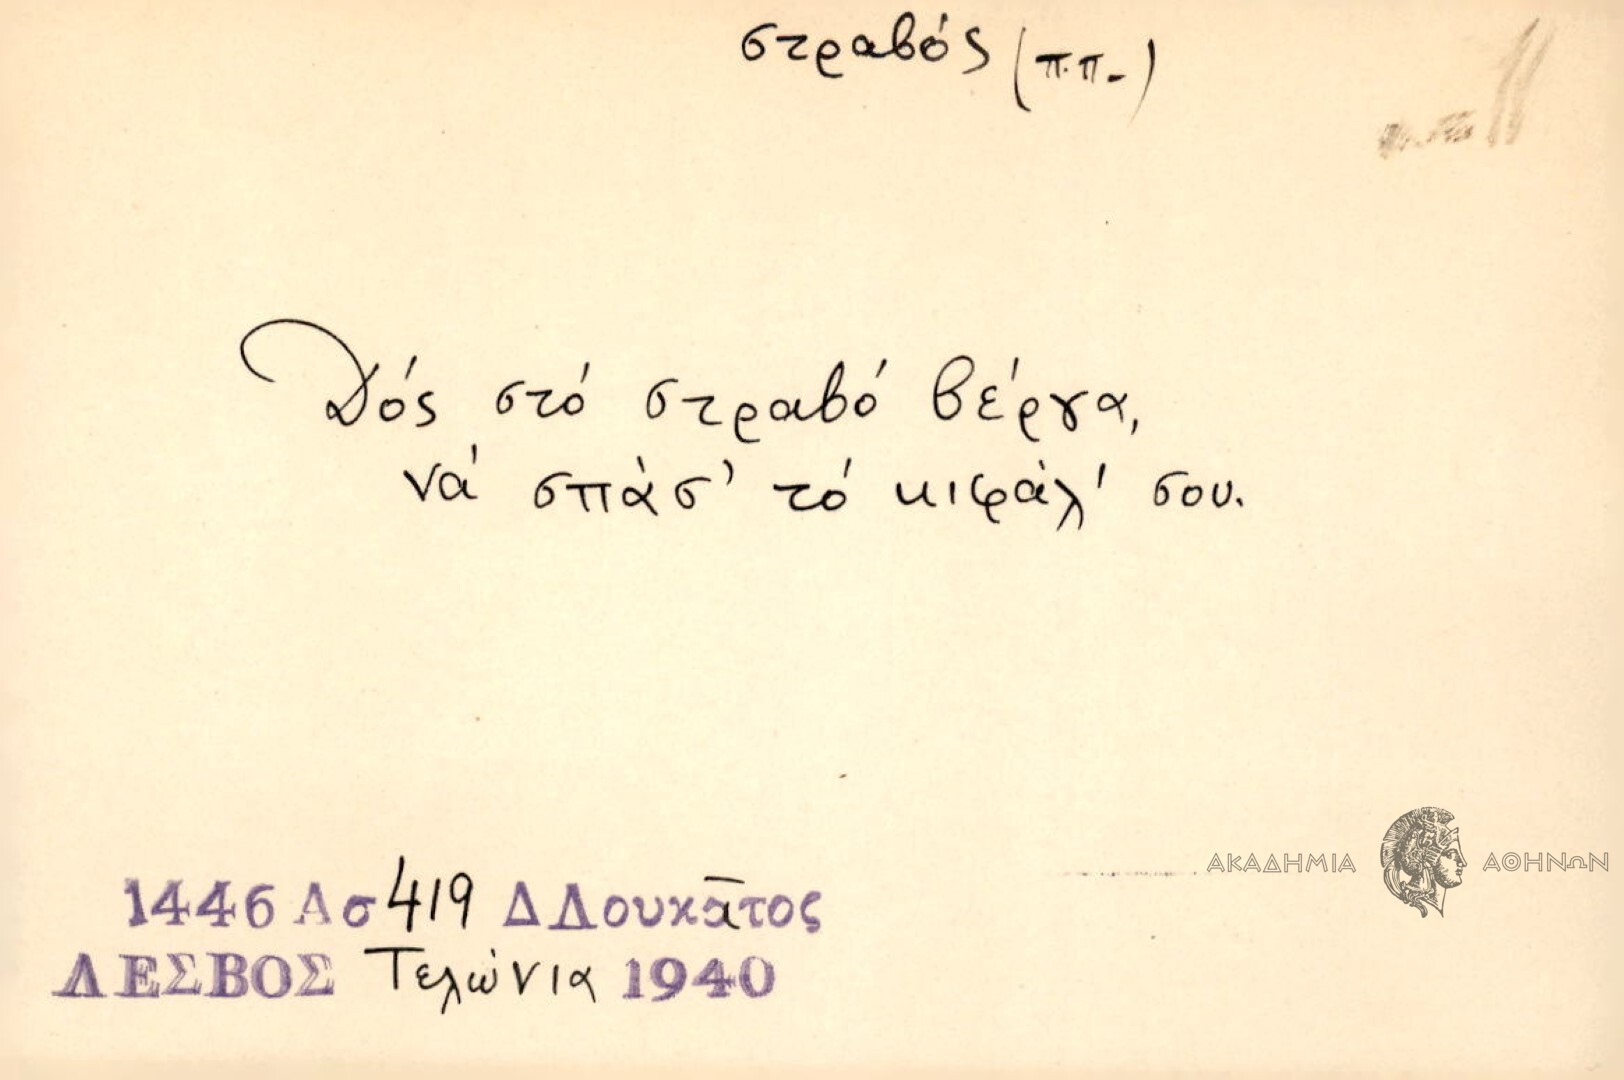 στραβός (π.π-)
Δός στό στραβό βέργα,
νά σπάσ' τό κιφάλ' σου.
1446 Λσ 419 Δ Λουκᾱτος
ΛΕΣΒΟΣ Τελώνια 1940
ΑΚΑΔΗΜΙΑ ΑΘΗΝΩΝ